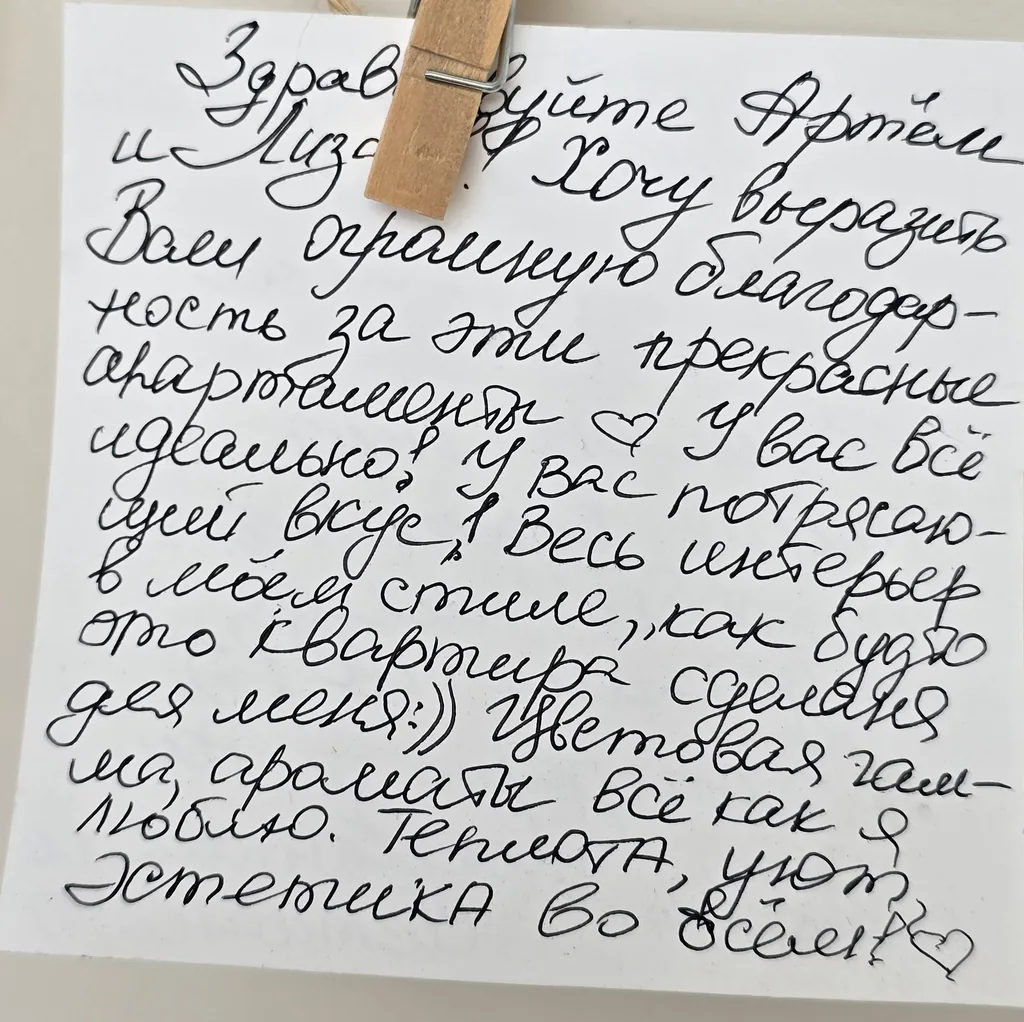 Здрав вуйте Артём
и Лиза! Хочу выразить
Вам огромную благодар-
ность за эти прекрасные
апартаменты ♡ У вас всё
идеально! У вас потрясаю-
щий вкус! Весь интерьер
в моём стиле, как будто
это квартира сделаня
для меня:)) Цветовая гам-
ма, ароматы всё как я
люблю. Теплота, уют,
эстетика во всём! ♡